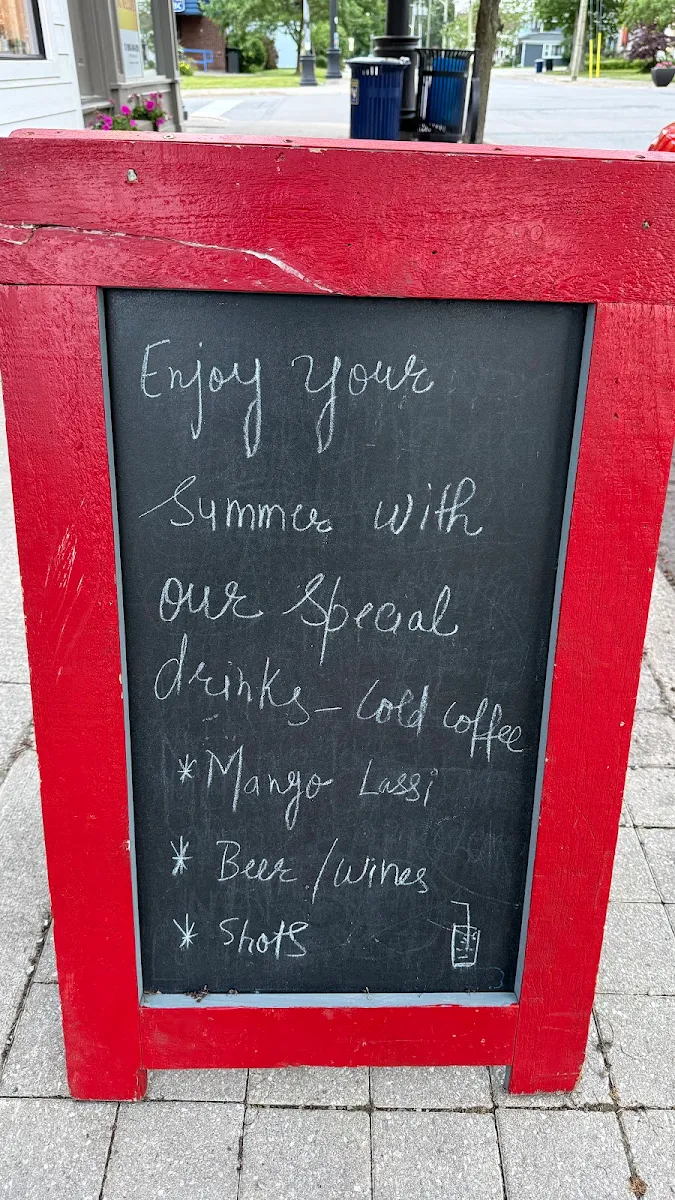 Enjoy your
Summer with
our Special
drinks - Cold coffee
* Mango Lassi
* Beer / wines
* Shots